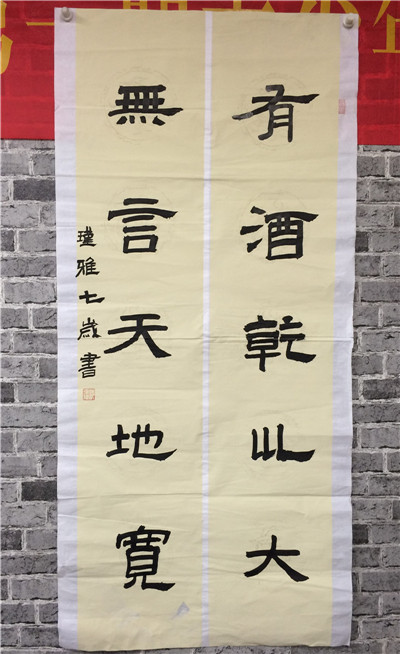 有酒乾坤大
無言天地寬
瑾雅七歲書